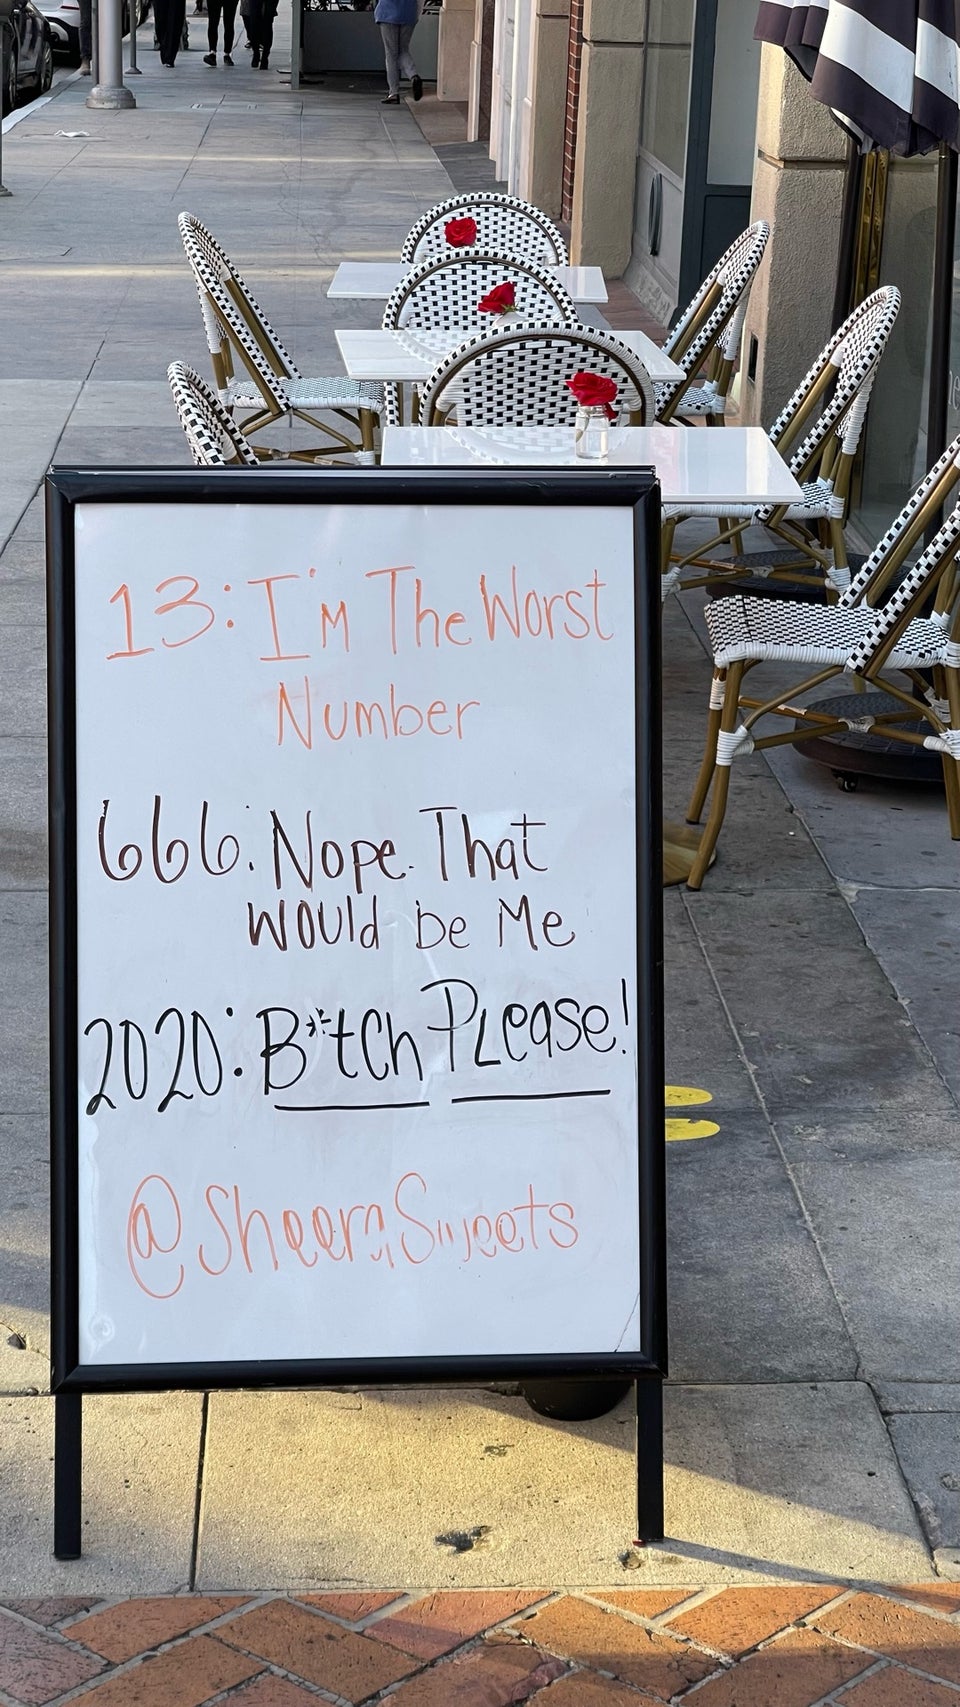 13: I'm The Worst
Number
666: Nope. That
would be Me
2020: B*tch PLease!
@SheeraSweets